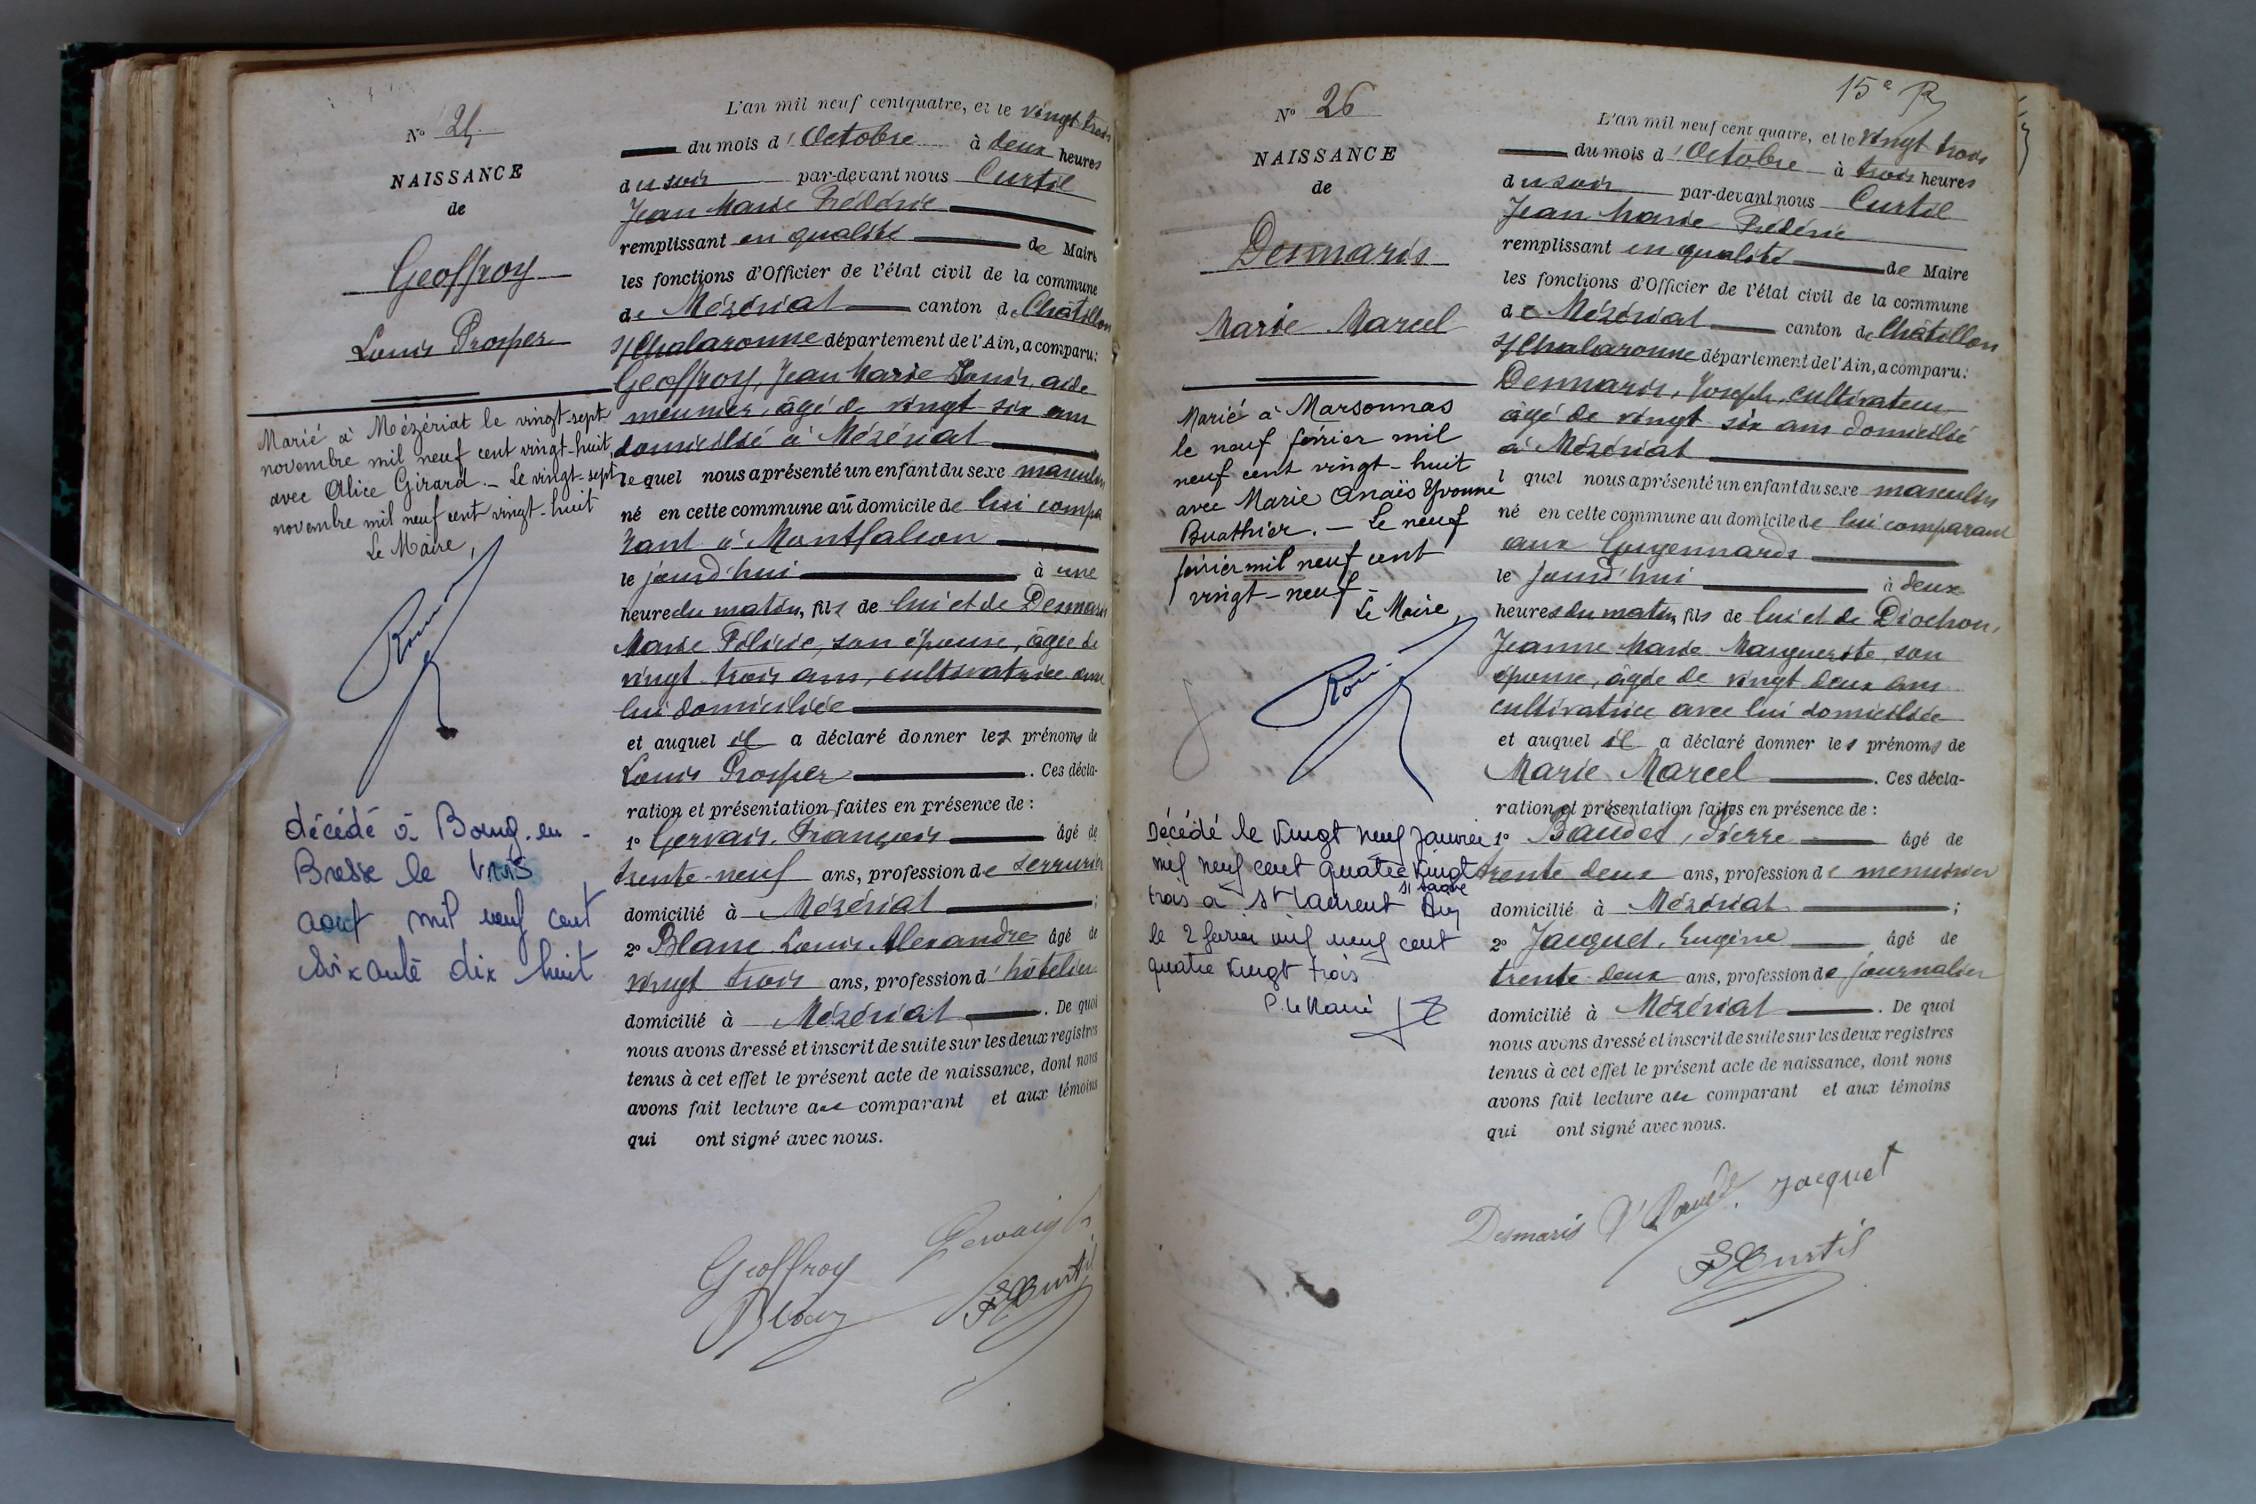 N° 25.
NAISSANCE
de
Geoffroy
Louis Prosper
Marié à Mézériat le vingt-sept
novembre mil neuf cent vingt-huit,
avec Alice Girard. – Le vingt-sept
novembre mil neuf cent vingt-huit
Le Maire,
décédé à Bourg-en-
Bresse le trois
aout mil neuf cent
soixante dix huit
L'an mil neuf cent quatre, et le vingt trois
du mois d'Octobre à deux heures
du soir par-devant nous Curtil
Jean Marie Frédéric
remplissant en qualité de Maire
les fonctions d'Officier de l'état civil de la commune
de Mézériat canton de Châtillon
s/ Chalaronne département de l'Ain, a comparu:
Geoffroy, Jean Marie Louis, aide
meunier, âgé de vingt six ans
domicilié à Mézériat
lequel nous a présenté un enfant du sexe masculin
né en cette commune au domicile de lui compa
rant à Montfalcon
le jourd'hui à une
heure du matin, fils de lui et de Desmaris
Marie Félicie, son épouse, âgée de
vingt trois ans, cultivatrice avec
lui domiciliée
et auquel il a déclaré donner les prénoms de
Louis Prosper. Ces décla-
ration et présentation faites en présence de :
1° Gervais, François âgé de
trente-neuf ans, profession de serrurier
domicilié à Mézériat ;
2° Blanc Louis Alexandre âgé de
vingt trois ans, profession d'hôtelier
domicilié à Mézériat. De quoi
nous avons dressé et inscrit de suite sur les deux registres
tenus à cet effet le présent acte de naissance, dont nous
avons fait lecture au comparant et aux témoins
qui ont signé avec nous.
Geoffroy
Blanc
Curtil
15e R
N° 26
NAISSANCE
de
Desmaris
Marie Marcel
Marié à Marsonnas
le neuf février mil
neuf cent vingt-huit
avec Marie Anaïs Yvonne
Buathier. – Le neuf
février mil neuf cent
vingt-neuf –
Le Maire,
Décédé le vingt neuf janvier
mil neuf cent quatre vingt
trois à St Laurent s/ Saône Ain
le 2 février mil neuf cent
quatre vingt trois
P. le Maire
L'an mil neuf cent quatre, et le vingt trois
du mois d'Octobre à trois heures
du soir par-devant nous Curtil
Jean Marie Frédéric
remplissant en qualité de Maire
les fonctions d'Officier de l'état civil de la commune
de Mézériat canton de Châtillon
s/ Chalaronne département de l'Ain, a comparu:
Desmaris, Joseph, cultivateur
âgé de vingt six ans domicilié
à Mézériat
lquel nous a présenté un enfant du sexe masculin
né en cette commune au domicile de lui comparant
aux Guyennards
le jourd'hui à deux
heures du matin, fils de lui et de Diochon,
Jeanne Marie Marguerite son
épouse, âgée de vingt deux ans
cultivatrice avec lui domiciliée
et auquel il a déclaré donner les prénoms de
Marie Marcel. Ces décla-
ration et présentation faites en présence de :
1° Baudet, Pierre âgé de
trente deux ans, profession de menuisier
domicilié à Mézériat ;
2° Jacquet, Eugène âgé de
trente-deux ans, profession de journalier
domicilié à Mézériat. De quoi
nous avons dressé et inscrit de suite sur les deux registres
tenus à cet effet le présent acte de naissance, dont nous
avons fait lecture au comparant et aux témoins
qui ont signé avec nous.
Desmaris Jacquet
Curtil